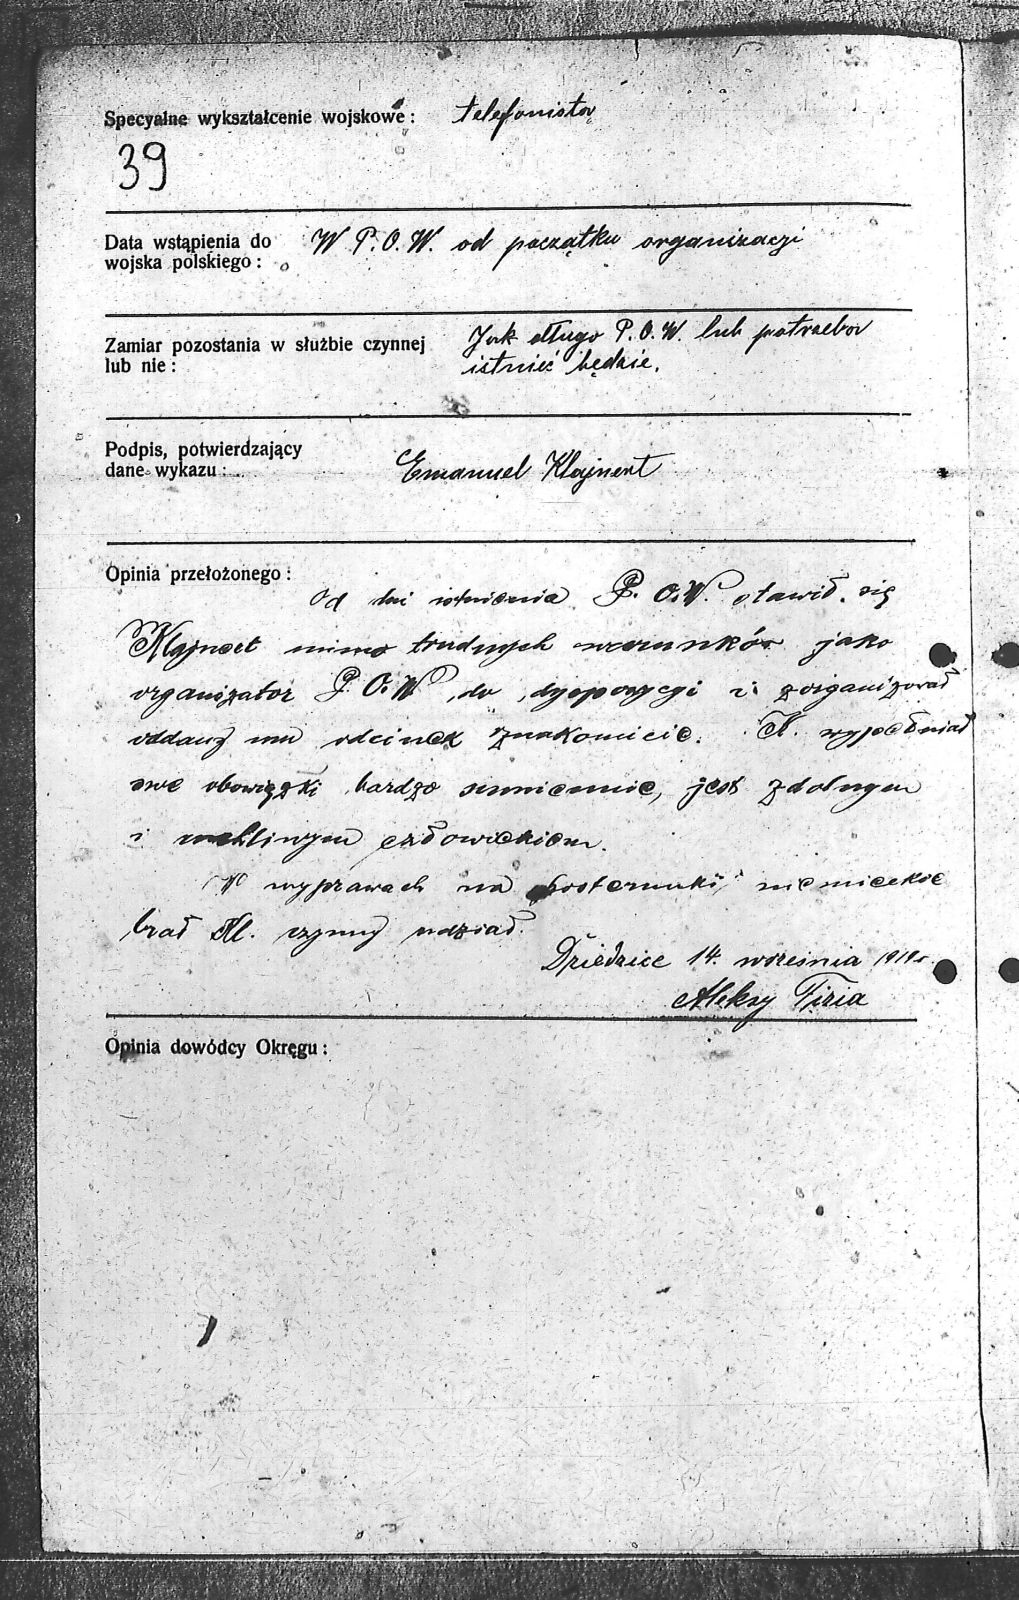 Specyalne wykształcenie wojskowe : telefonista
39
Data wstąpienia do W P.O.W. od początku organizacji
wojska polskiego :
Zamiar pozostania w służbie czynnej Jak długo P.O.W. lub potrzeba
lub nie : istnieć będzie.
Podpis, potwierdzający
dane wykazu : Emanuel Klajnert
Opinia przełożonego :
Od dni istnienia P.O.W. stawił się
Klajnert mimo trudnych warunków jako
organizator P.O.W. do dyspozycji i zorganizował
oddany mu odcinek znakomicie. K. wypełniał
swe obowiązki bardzo sumiennie, jest zdolnym
i człowiekiem.
W wyprawach na posterunki niemieckie
brał Kl. czynny udział.
Dziedzice 14. września 1919 r.
Aleksy
Opinia dowódcy Okręgu :